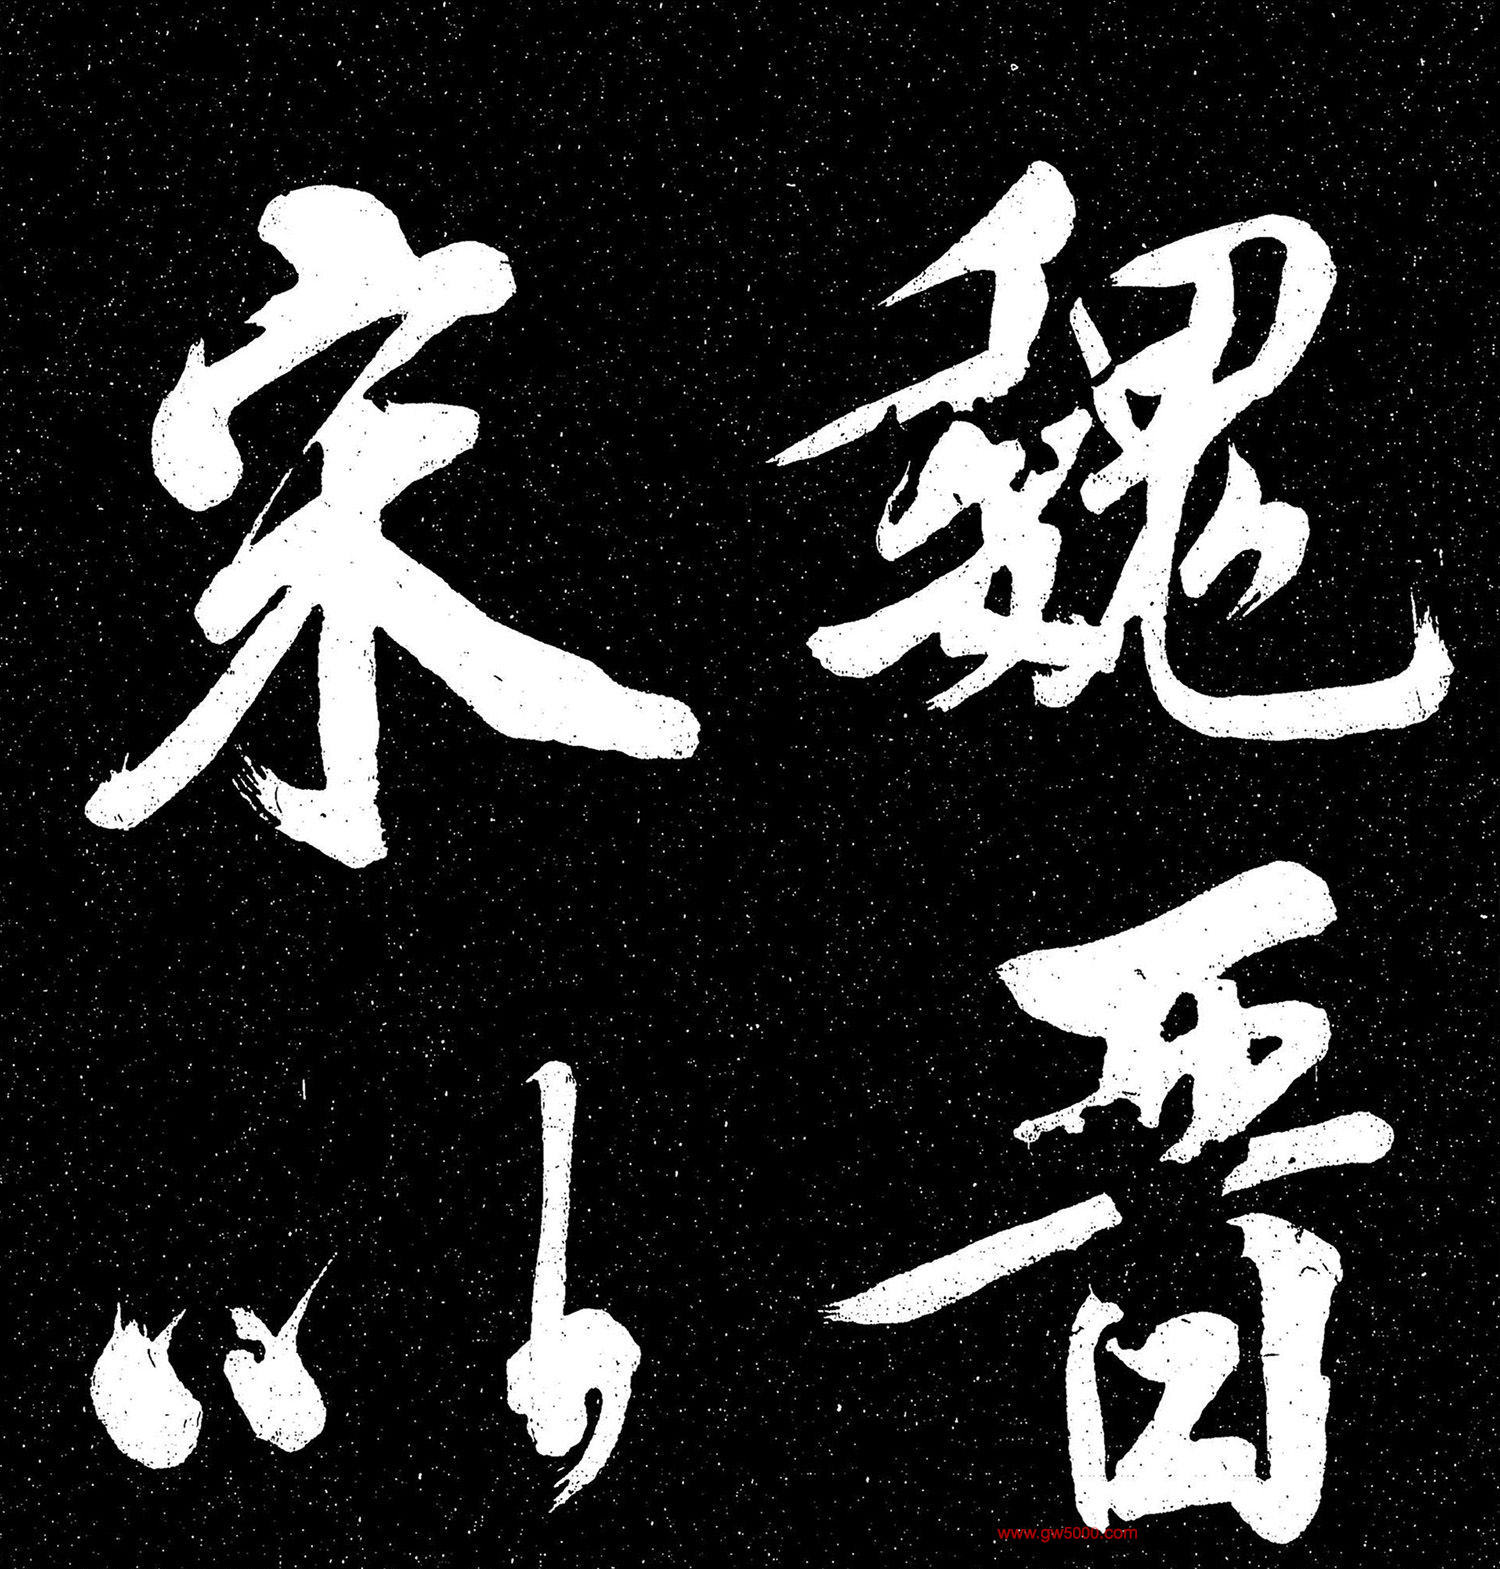 魏晋
宋以
www.gw5000.com